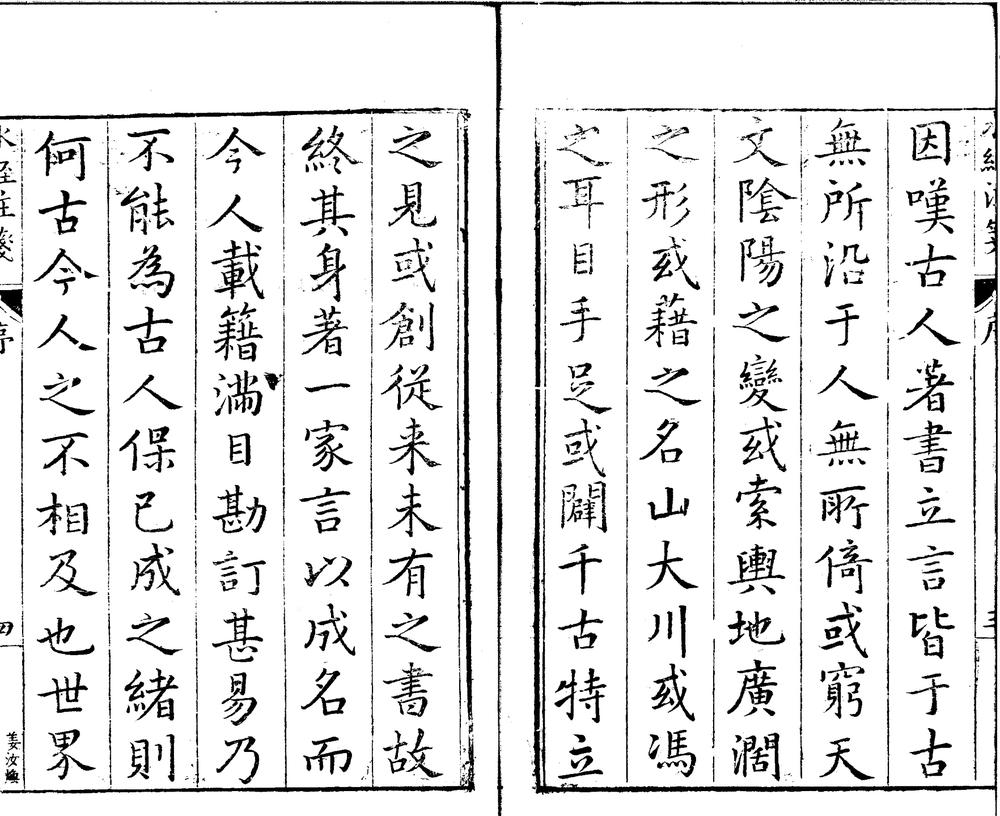 水經注箋 序 三
因嘆古人著書立言皆于古
無所沿于人無所倚或窮天
文陰陽之變或索輿地廣濶
之形或藉之名山大川或馮
之耳目手足或闢千古特立
之見或創從来未有之書故
終其身著一家言以成名而
今人載籍滿目勘訂甚易乃
不能為古人保已成之緒則
何古今人之不相及也世界
水經註箋 序 四 姜汝